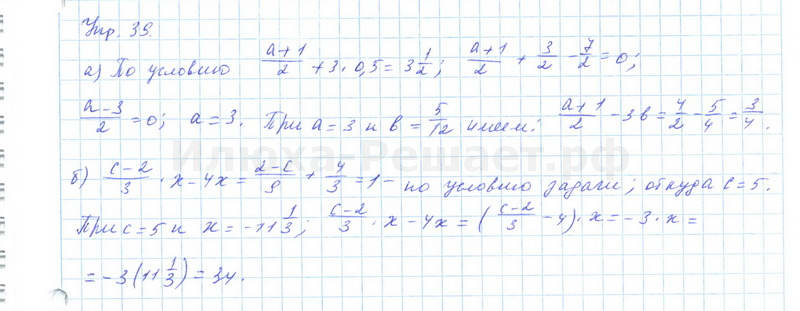 Упр. 39
а) По условию (a+1)/2 + 3·0,5 = 3 1/2; (a+1)/2 + 3/2 - 7/2 = 0;
(a-3)/2 = 0; a = 3. При a = 3 и в = 5/12 имеем: (a+1)/2 - 3в = 4/2 - 5/4 = 3/4.
Илюха-Решает.рф
б) (c-2)/3 · x - 4x = (2-c)/9 + 4/3 = 1 - по условию задачи; откуда c = 5.
При c = 5 и x = -11 1/3; (c-2)/3 · x - 4x = ((c-2)/3 - 4) · x = -3 · x =
= -3(11 1/3) = 34.